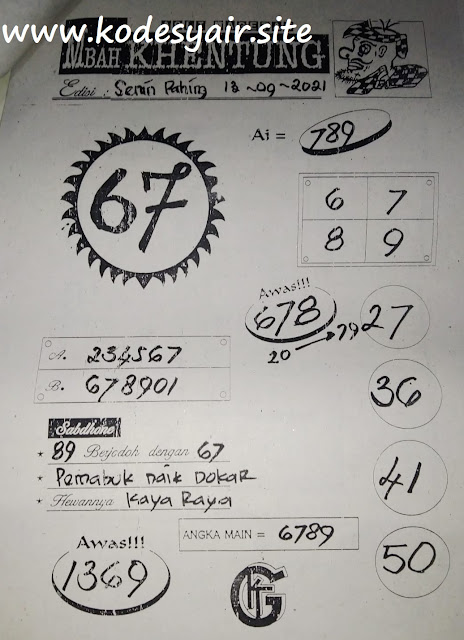 www.kodesyair.site
MBAH KHENTUNG
Edisi : Senin Pahing 13-09-2021
Ai = 789
67
6 7
8 9
Awas!!!
678
20 → 79
27
A. 234567
B. 678901
36
Sabdhone
* 89 Berjodoh dengan 67
* Pemabuk naik Dokar
* Hewannya Kaya Raya
41
ANGKA MAIN = 6789
Awas!!!
1369
50